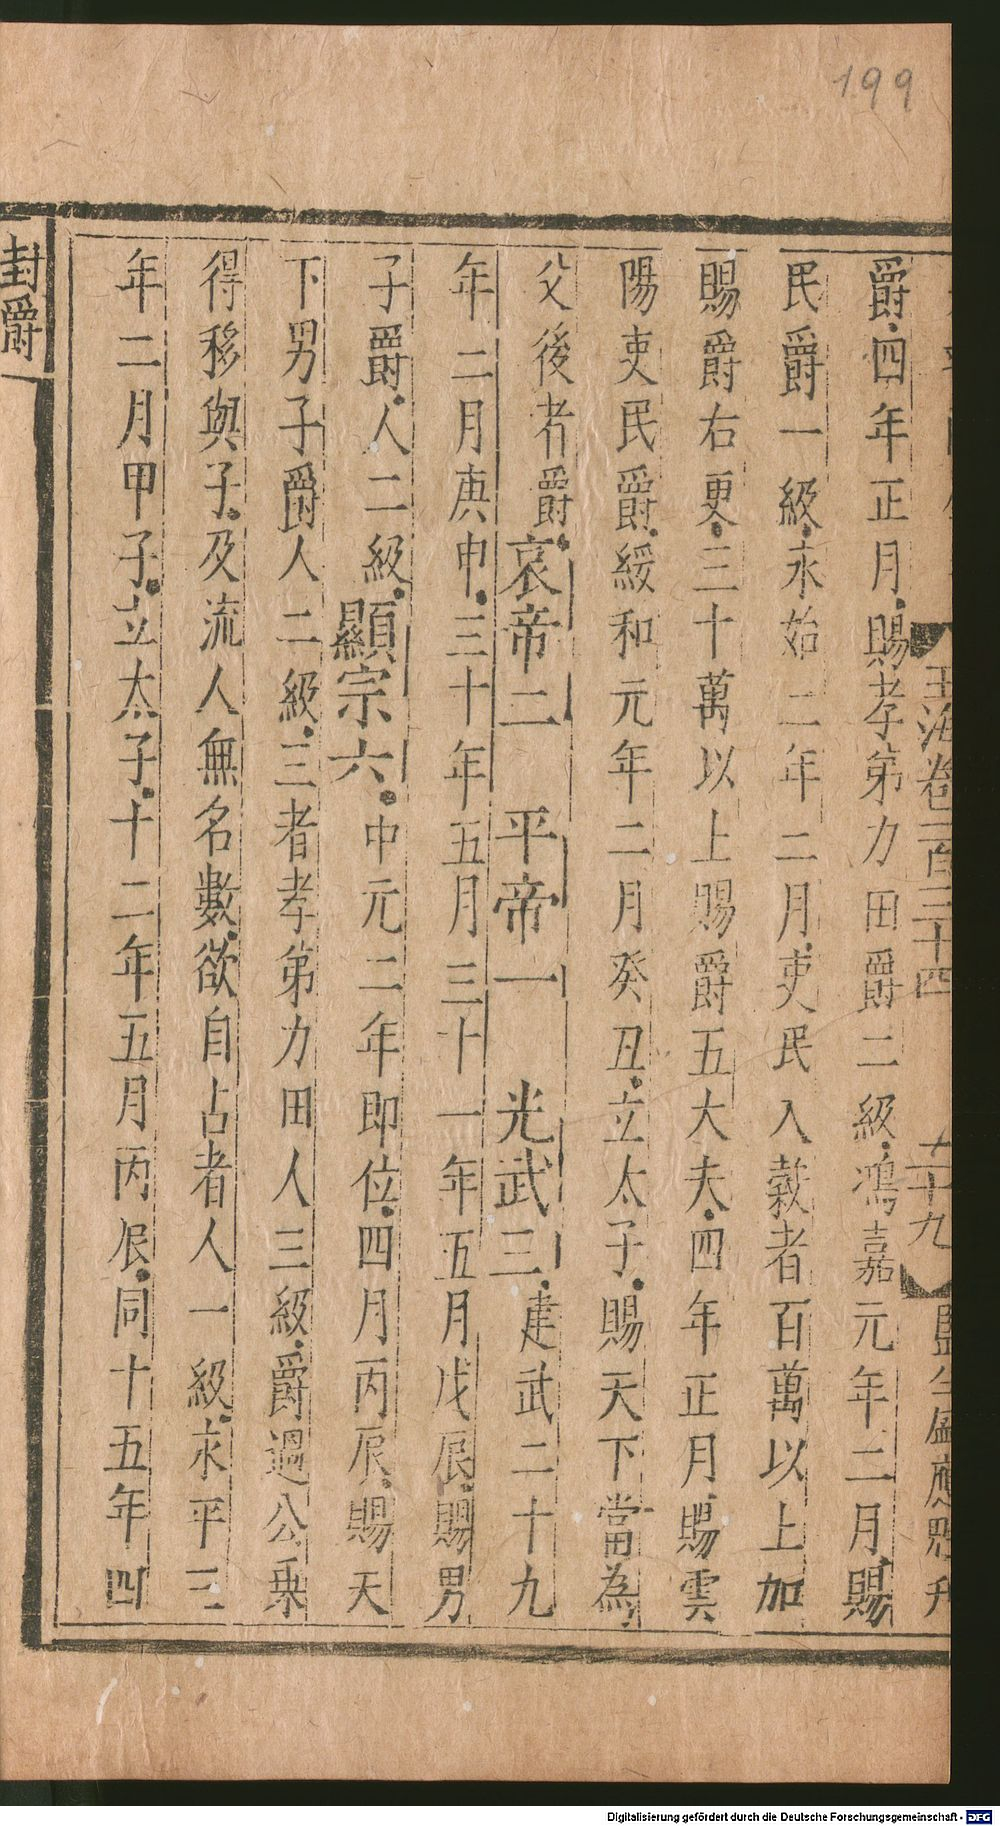 199
玉海卷一百三十四
二十九
爵四年正月賜孝弟力田爵二級鴻嘉元年二月賜
民爵一級永始二年二月吏民入穀者百萬以上加
賜爵右更三十萬以上賜爵五大夫四年正月賜雲
陽吏民爵綏和元年二月癸丑立太子賜天下當為
父後者爵哀帝二 平帝一 光武三建武二十九
年二月庚申三十年五月三十一年五月戊辰賜男
子爵人二級顯宗六中元二年即位四月丙辰賜天
下男子爵人二級三者孝弟力田人三級爵過公乘
得移與子及流人無名數欲自占者人一級永平三
年二月甲子立太子十二年五月丙辰同十五年四
封爵
Digitalisierung gefördert durch die Deutsche Forschungsgemeinschaft - DFG